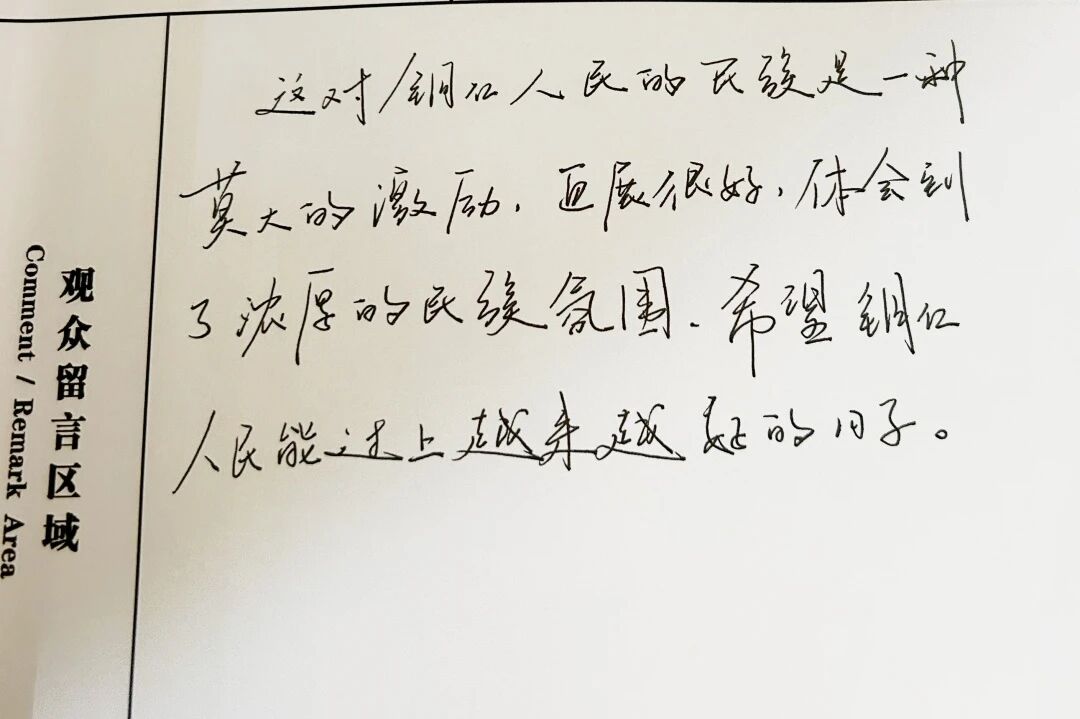 这对铜仁人民的民族是一种
莫大的激励，画展很好，体会到
了浓厚的民族氛围。希望铜仁
人民能过上越来越好的日子。
观众留言区域
Comment / Remark Area